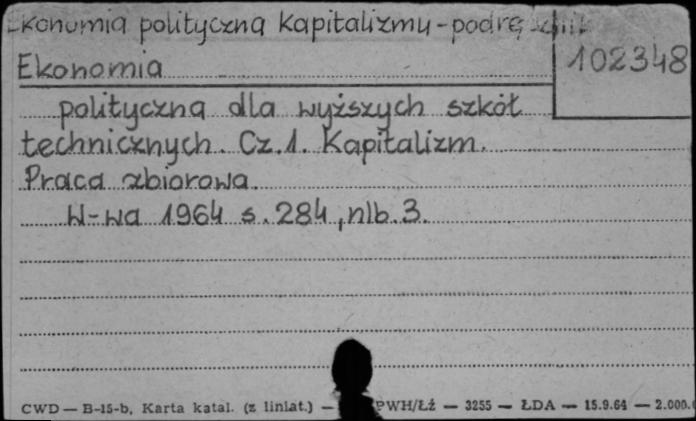 Ekonomia polityczna kapitalizmu - podręcznik
102348
Ekonomia
polityczna dla wyższych szkół
technicznych. Cz.1. Kapitalizm.
Praca zbiorowa.
W-wa 1964 s. 284, nlb. 3.
CWD — B-15-b, Karta katal. (z liniat.) — PWH/Łź — 3255 — ŁDA — 15.9.64 — 2.000.